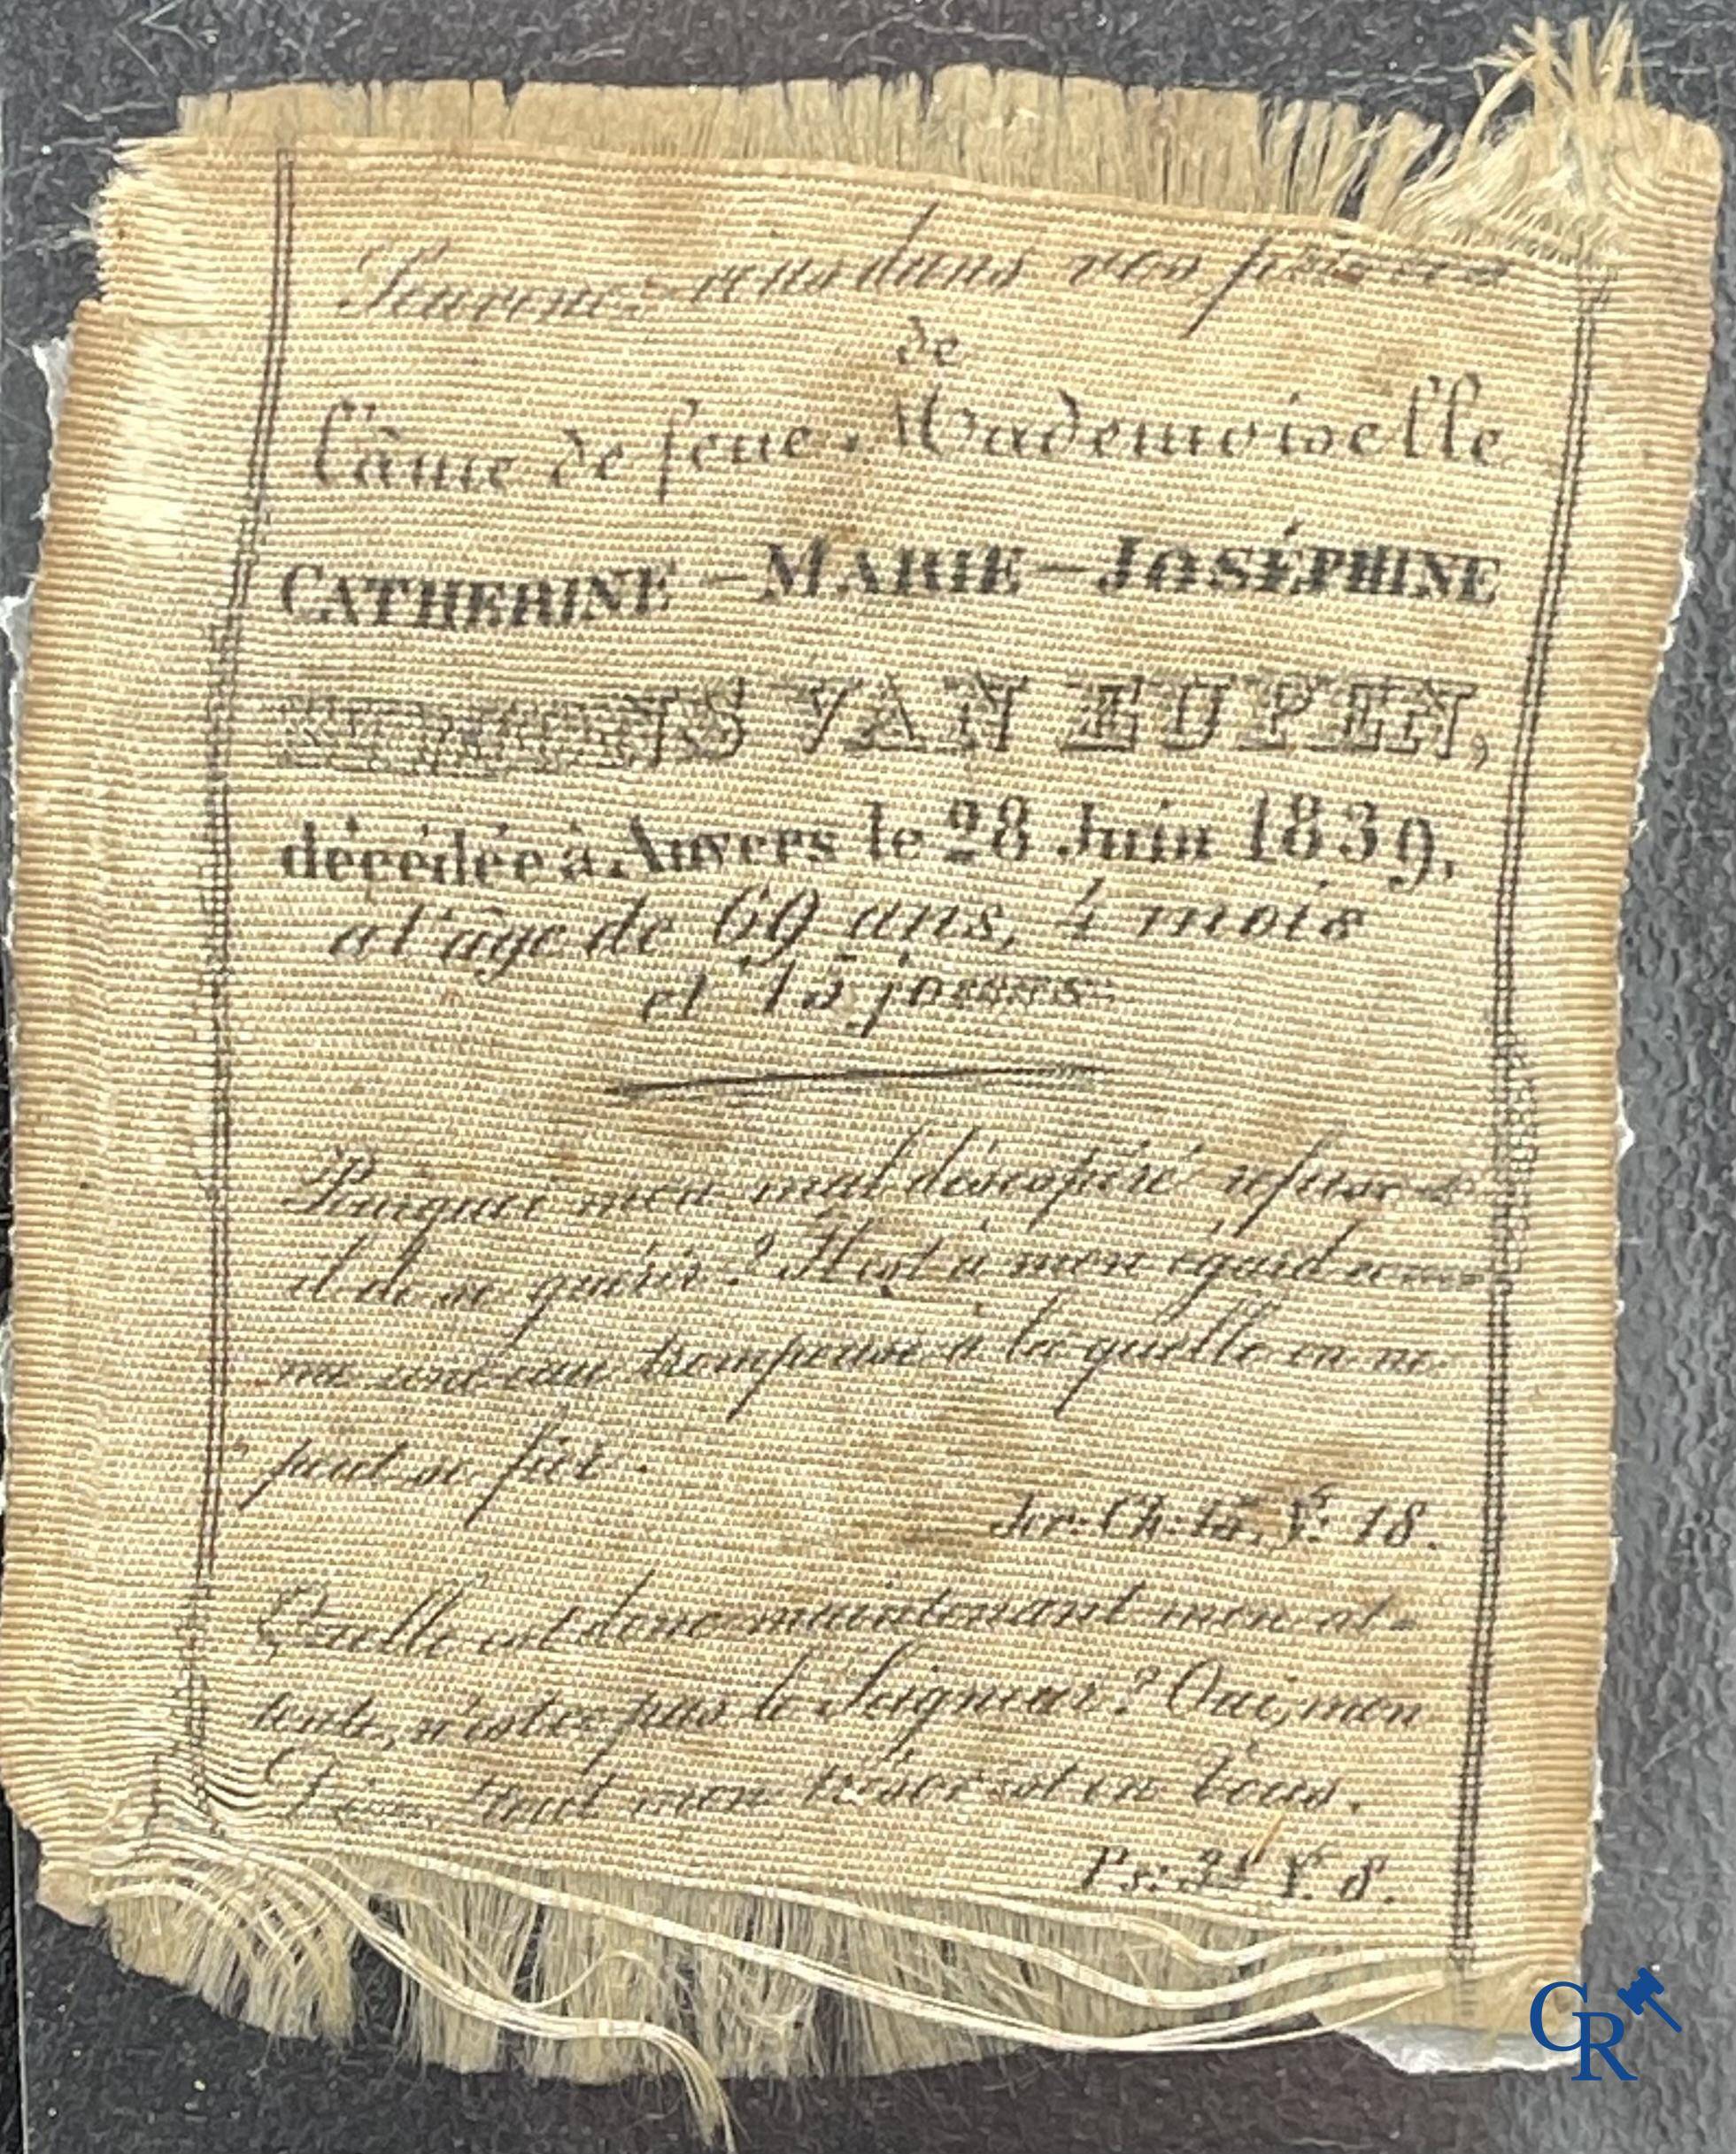 Souvenez-vous dans vos prières
de
l'âme de feue Mademoiselle
CATHERINE - MARIE - JOSÉPHINE
VAN EUPEN,
décédée à Anvers le 28 Juin 1839,
a l'âge de 69 ans, 4 mois
et 15 jours
Pourquoi mon mal désespéré refuse-t-
il de se guérir? Il est à mon égard com-
me une eau trompeuse à la quelle on ne
peut se fier.
Jer: Ch: 15, V: 18.
Quelle est donc maintenant mon at-
tente, n'est ce pas le Seigneur? Oui, mon
Dieu, tout mon trésor est en Vous.
Ps: V. 8.
CR